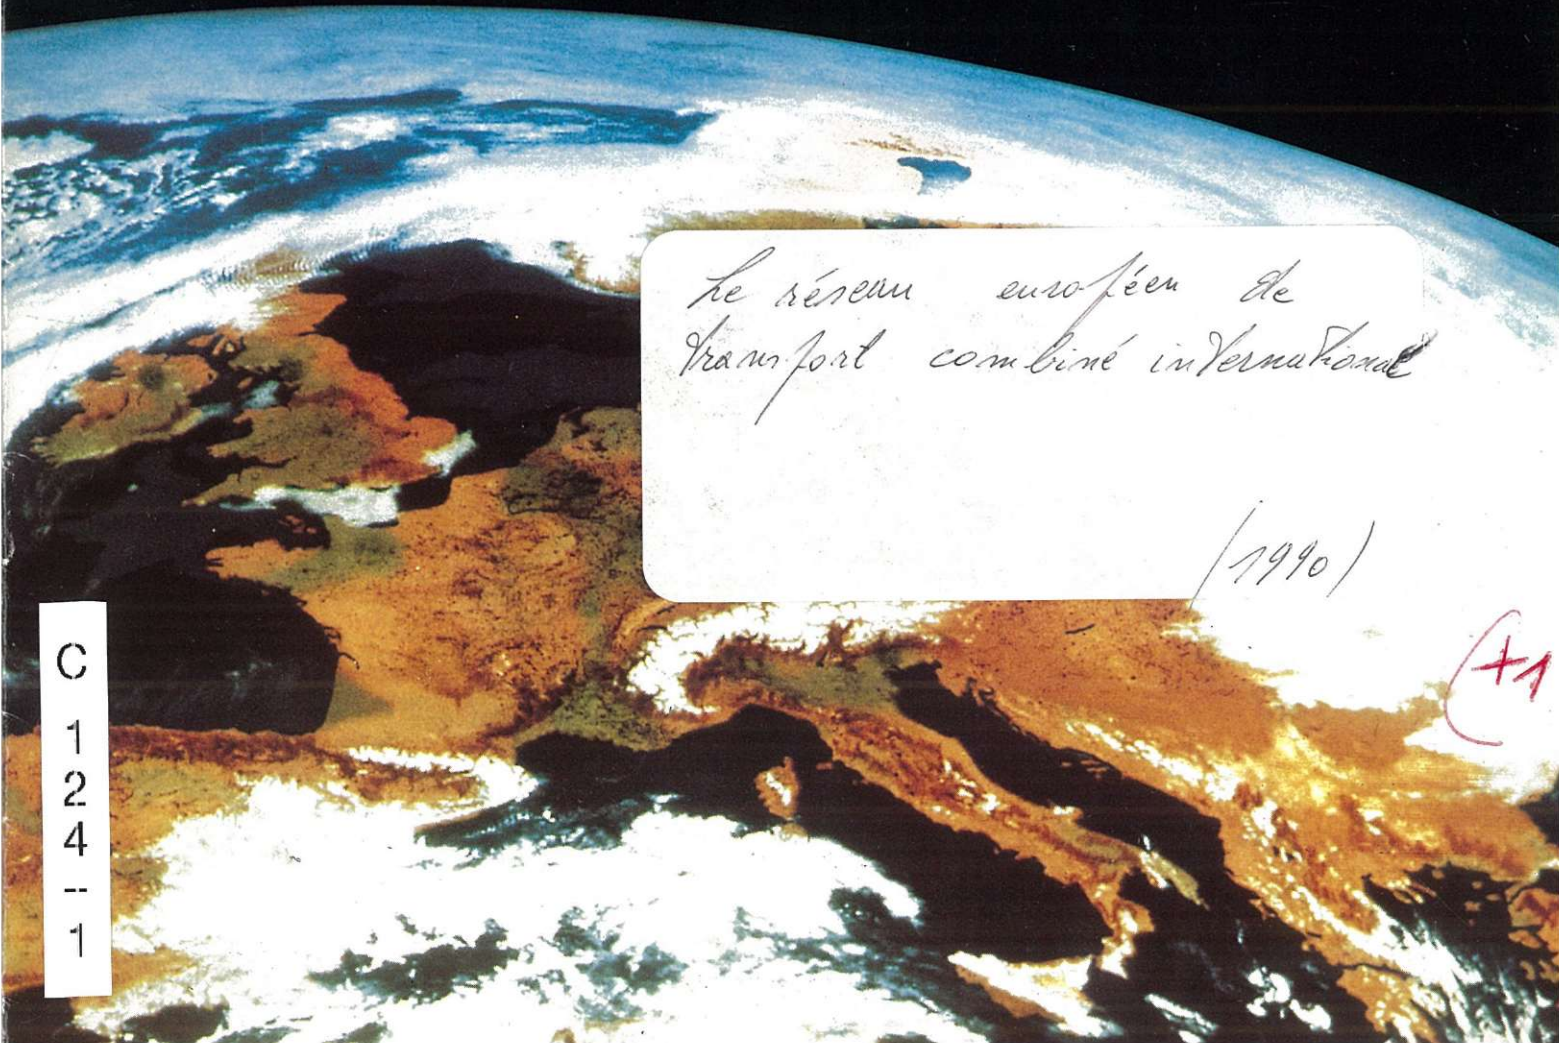 Le réseau européen de
transport combiné international
(1990)
(+1
C
1
2
4
--
1